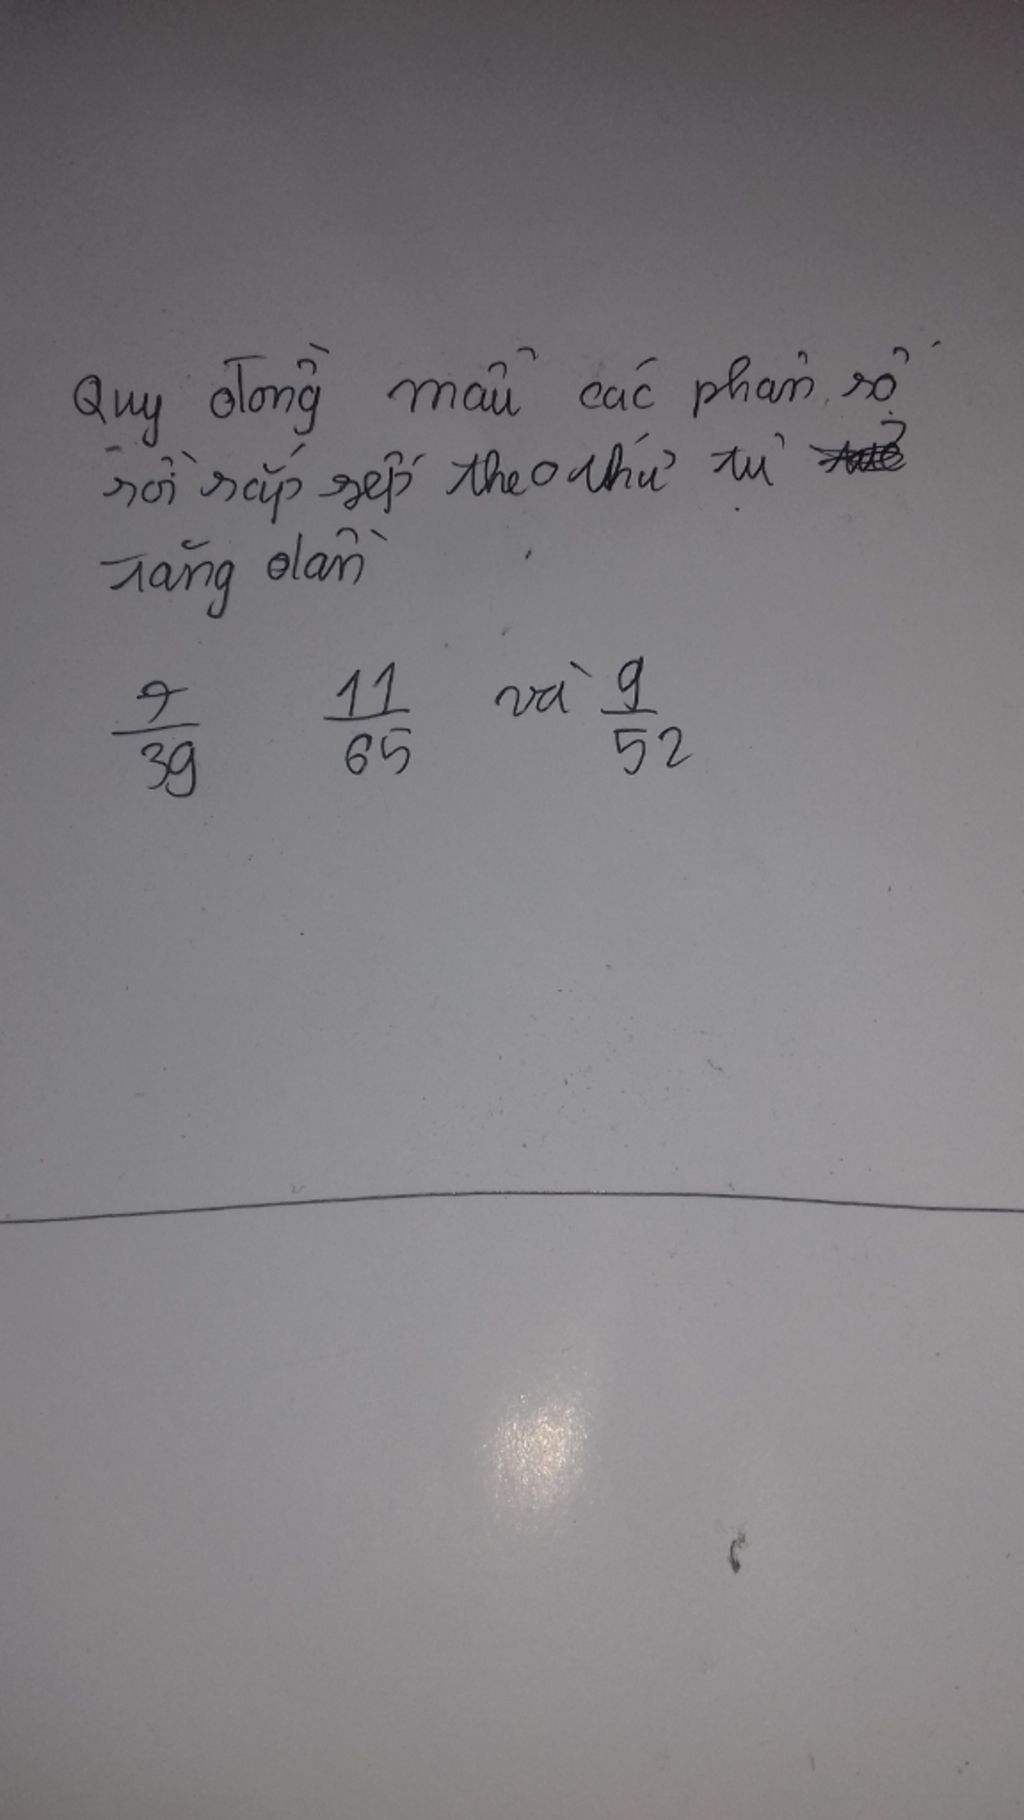 Quy đồng mẫu các phân số
rồi sắp xếp theo thứ tự
tăng dần
7/39 11/65 và 9/52